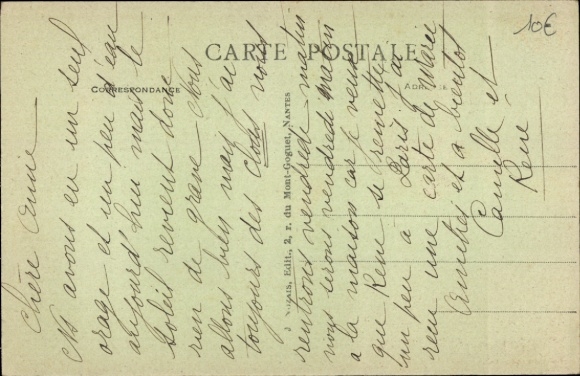 10€
CARTE POSTALE
CORRESPONDANCE
Nantes, Edit., 2, r. du Mont-Goguet, NANTES
Chère Amie
avons eu un seul
orage et un peu d'eau
aujourd'hui mais le
soleil revient donc
rien de grave Nous
allons bien mais j'ai
toujours des clous nous
rentrons vendredi matin
nous irons vendredi
a la maison car je veux
que René se remette
un peu a Paris j'ai
reçu une carte de Marie
Amitiés et a bientôt
Camille et
René